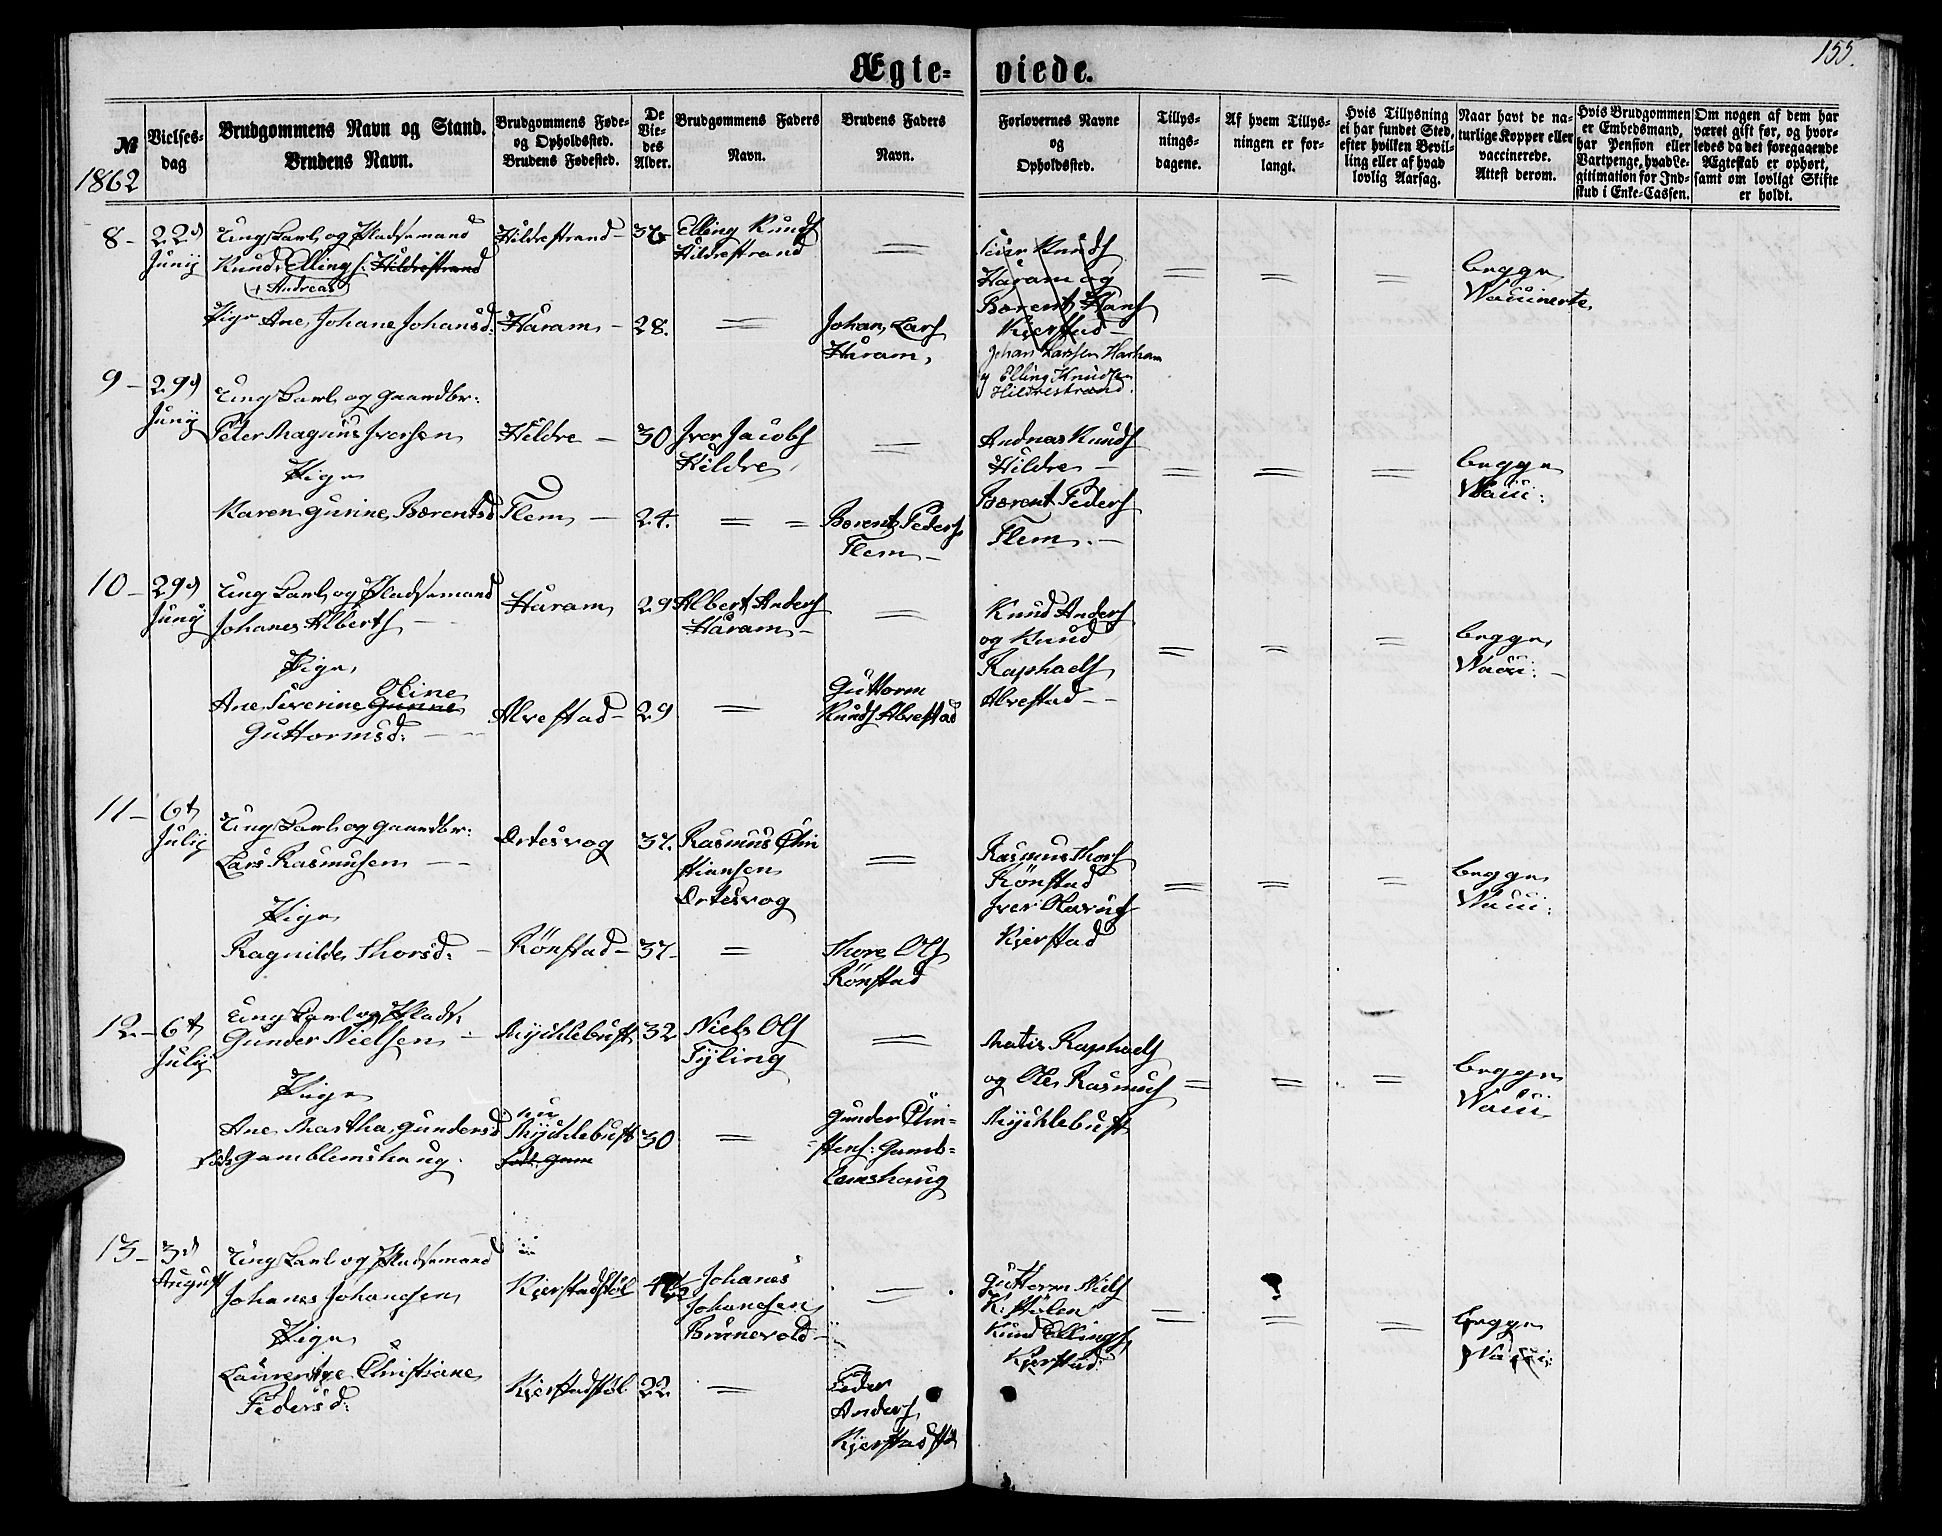 155.
Ægte- viede.
№
1862
Vielses-
dag
Brudgommens Navn og Stand.
Brudens Navn.
Brudgommens Føde-
og Opholdssted.
Brudens Fødested.
De
Vie-
des
Alder.
Brudgommens Faders
Navn.
Brudens Faders
Navn.
Forlovernes Navne
og
Opholdssted.
Tillys-
nings-
dagene.
Af hvem Tillys-
ningen er for-
langt.
Hvis Tillysning
ei har fundet Sted,
efter hvilken Bevil-
ling eller af hvad
lovlig Aarsag.
Naar havt de na-
turlige Kopper eller
vaccinerede.
Attest derom.
Hvis Brudgommen
er Embedsmand,
har Pension eller
Vartpenge, hvad Le-
gitimation for Ind-
skud i Enke-Cassen.
Om nogen af dem har
været gift før, og hvor-
ledes da det foregaaende
Ægteskab er ophørt,
samt om lovligt Skifte
er holdt.
8 -
22d
Junij
Ung Karl og Pladsemand
Knud Ellings. Hildrestrand
+ Andreas
Pige Ane Johane Johansd:
Hildrestrand -
Haram -
36
28.
Elling Knuds
Hildrestrand
=
=
Johan Lars
Haram
Peter Knuds
Haram og
Barent Hans
Kjerstad -
Johan Larssen Harham
Elling Knudsen
Hildrestrand.
= = =
begge
Waccinerte
9 -
29d
Junij
Ung Karl og Gaardbr:
Peter Magnus Iversen
Pige
Karen Gurine Barentsd
Hildre -
Flem -
30
24.
Iver Jacobs
Hildre
= =
=
Barent Peders
Flem -
Andreas Knuds
Hildre -
Barent Peders
Flem. -
= = =
begge
Wacci:
10 -
29d
Junij
Ung Karl og Pladsemand
Johanes Alberts - -
Pige
Oline
Ane Severine Gurine
Guttormsd: - -
Haram
Alvestad -
29
29
Albert Anders
Haram -
=
=
Guttorm
Knuds Alvestad
Knud Anders
og Knud
Raphaels
Alvestad - -
= = =
begge
Wacci: -
11 -
6t
Julij
Ung Karl og Gaardbr:
Lars Rasmusen - -
Pige
Ragnilde Thorsd: -
Ortesvog
Rönstad -
37.
37.
Rasmus Chri
stiansen
Ortesvog
=
=
Thore Ols
Rönstad
Rasmus Thors
Rönstad
Iver
Kjerstad
= = =
begge
Wacci:
12 -
6t
Julij
Ung Karl og Plads:
Gunder Nielsen -
Pige
Ane Martha Gundersd
født Gamblemshaug.
Mychlebust
nu
Mychlebust
født Gam
32
30
Niels Ols
Fyling
=
=
Gunder Chri-
stens: Gamb-
lemshaug
Matis Raphaels
og Ole Rasmus
Mychlebust
= = =
begge
Wacci
13 -
3d
August
Ung Karl og Pladsemand
Johanes Johansen
Pige
Laurentze Christiane
Pedersd:
Kjerstadstöl
Kjerstadstöl
22
Johanes
Johansen
Brunevold -
=
=
Peder
Anders
Kjerstadstö
Guttorm Niels
K:stölen
Knud Ellings
Kjerstad:
= = =
begge
Wacci: